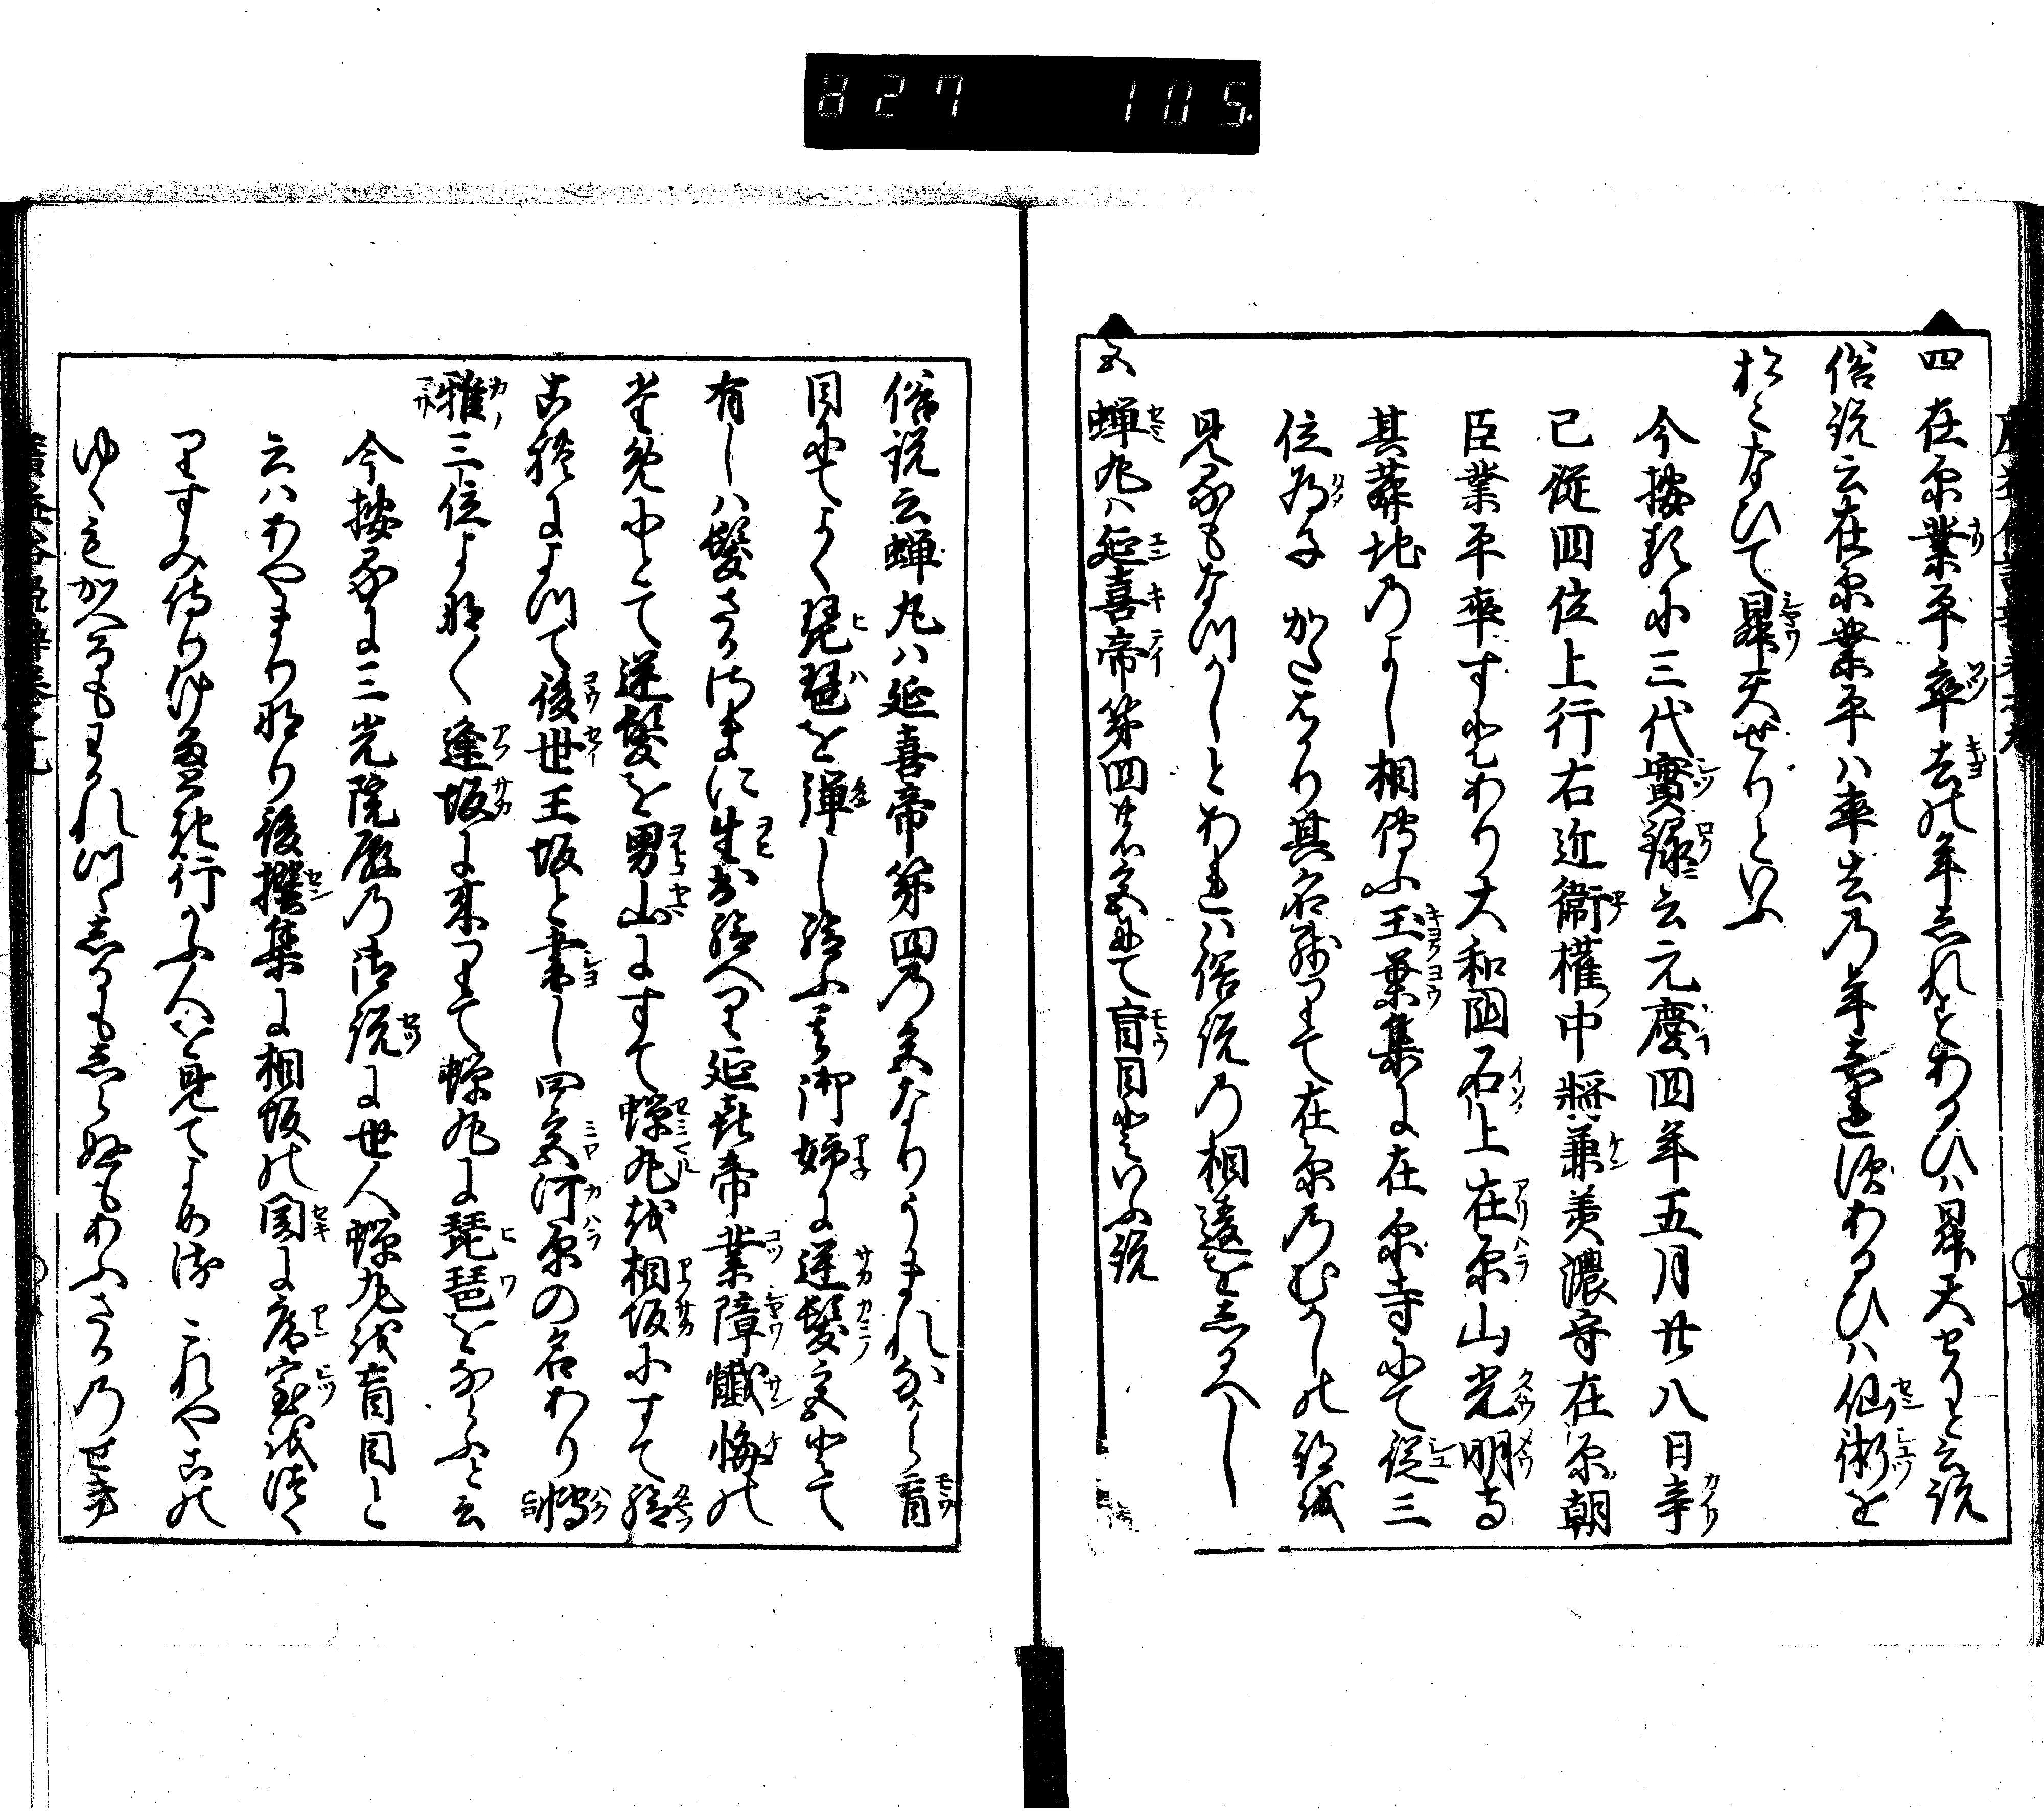 827 105.
四 在原業平卒去の年しれすあるひハ昇天せりと云説
俗説云在原業平ハ卒去乃年しれ須あるひハ仙術を
おこなひて昇天せりといふ
今按るに三代實録ニ云元慶四年五月廿八日辛
已従四位上行右近衛權中将兼美濃守在原朝
臣業平卒すとあり大和國石上在原山光明寺
其葬地のよし相傳ふ玉葉集に在原寺にて従三
位為子 かたはかり其名残とて在原のむかしの跡を
見るもなつかしとあれハ俗説の相違をしるへし
五 蝉丸ハ延喜帝第四の宮にて盲目といふ説
俗説云蝉丸ハ延喜帝第四の宮なりうまれなから盲
目にてよく琵琶を弾し給ふ其御姉に逆髪宮とて
有しハ髪さかさまに生出給へり延喜帝業障懺悔の
ために とて逆髪を男山にすて蝉丸を相坂にすて給
ふ よつて後世王坂と書し四宮河原の名あり博
雅三位よなよな逢坂に来りて蝉丸に琵琶をならふと云
今按るに三光院殿の御説に世人蝉丸を盲目と
云ハあやまりなり後撰集に相坂の関に庵室を造て
すみ侍りけるに行かふ人を見てよめる これやこの
ゆくもかへるもわかれつゝしるもしらぬもあふさかのせき